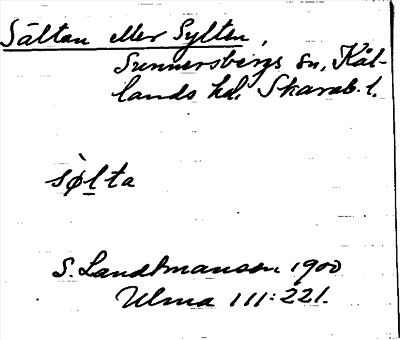 Sältan eller Sylten,
Sunnersbergs sn, Kål-
lands hd. Skarab. l.
sø̀lta
S. Landtmanson 1900
Ulma 111:221.